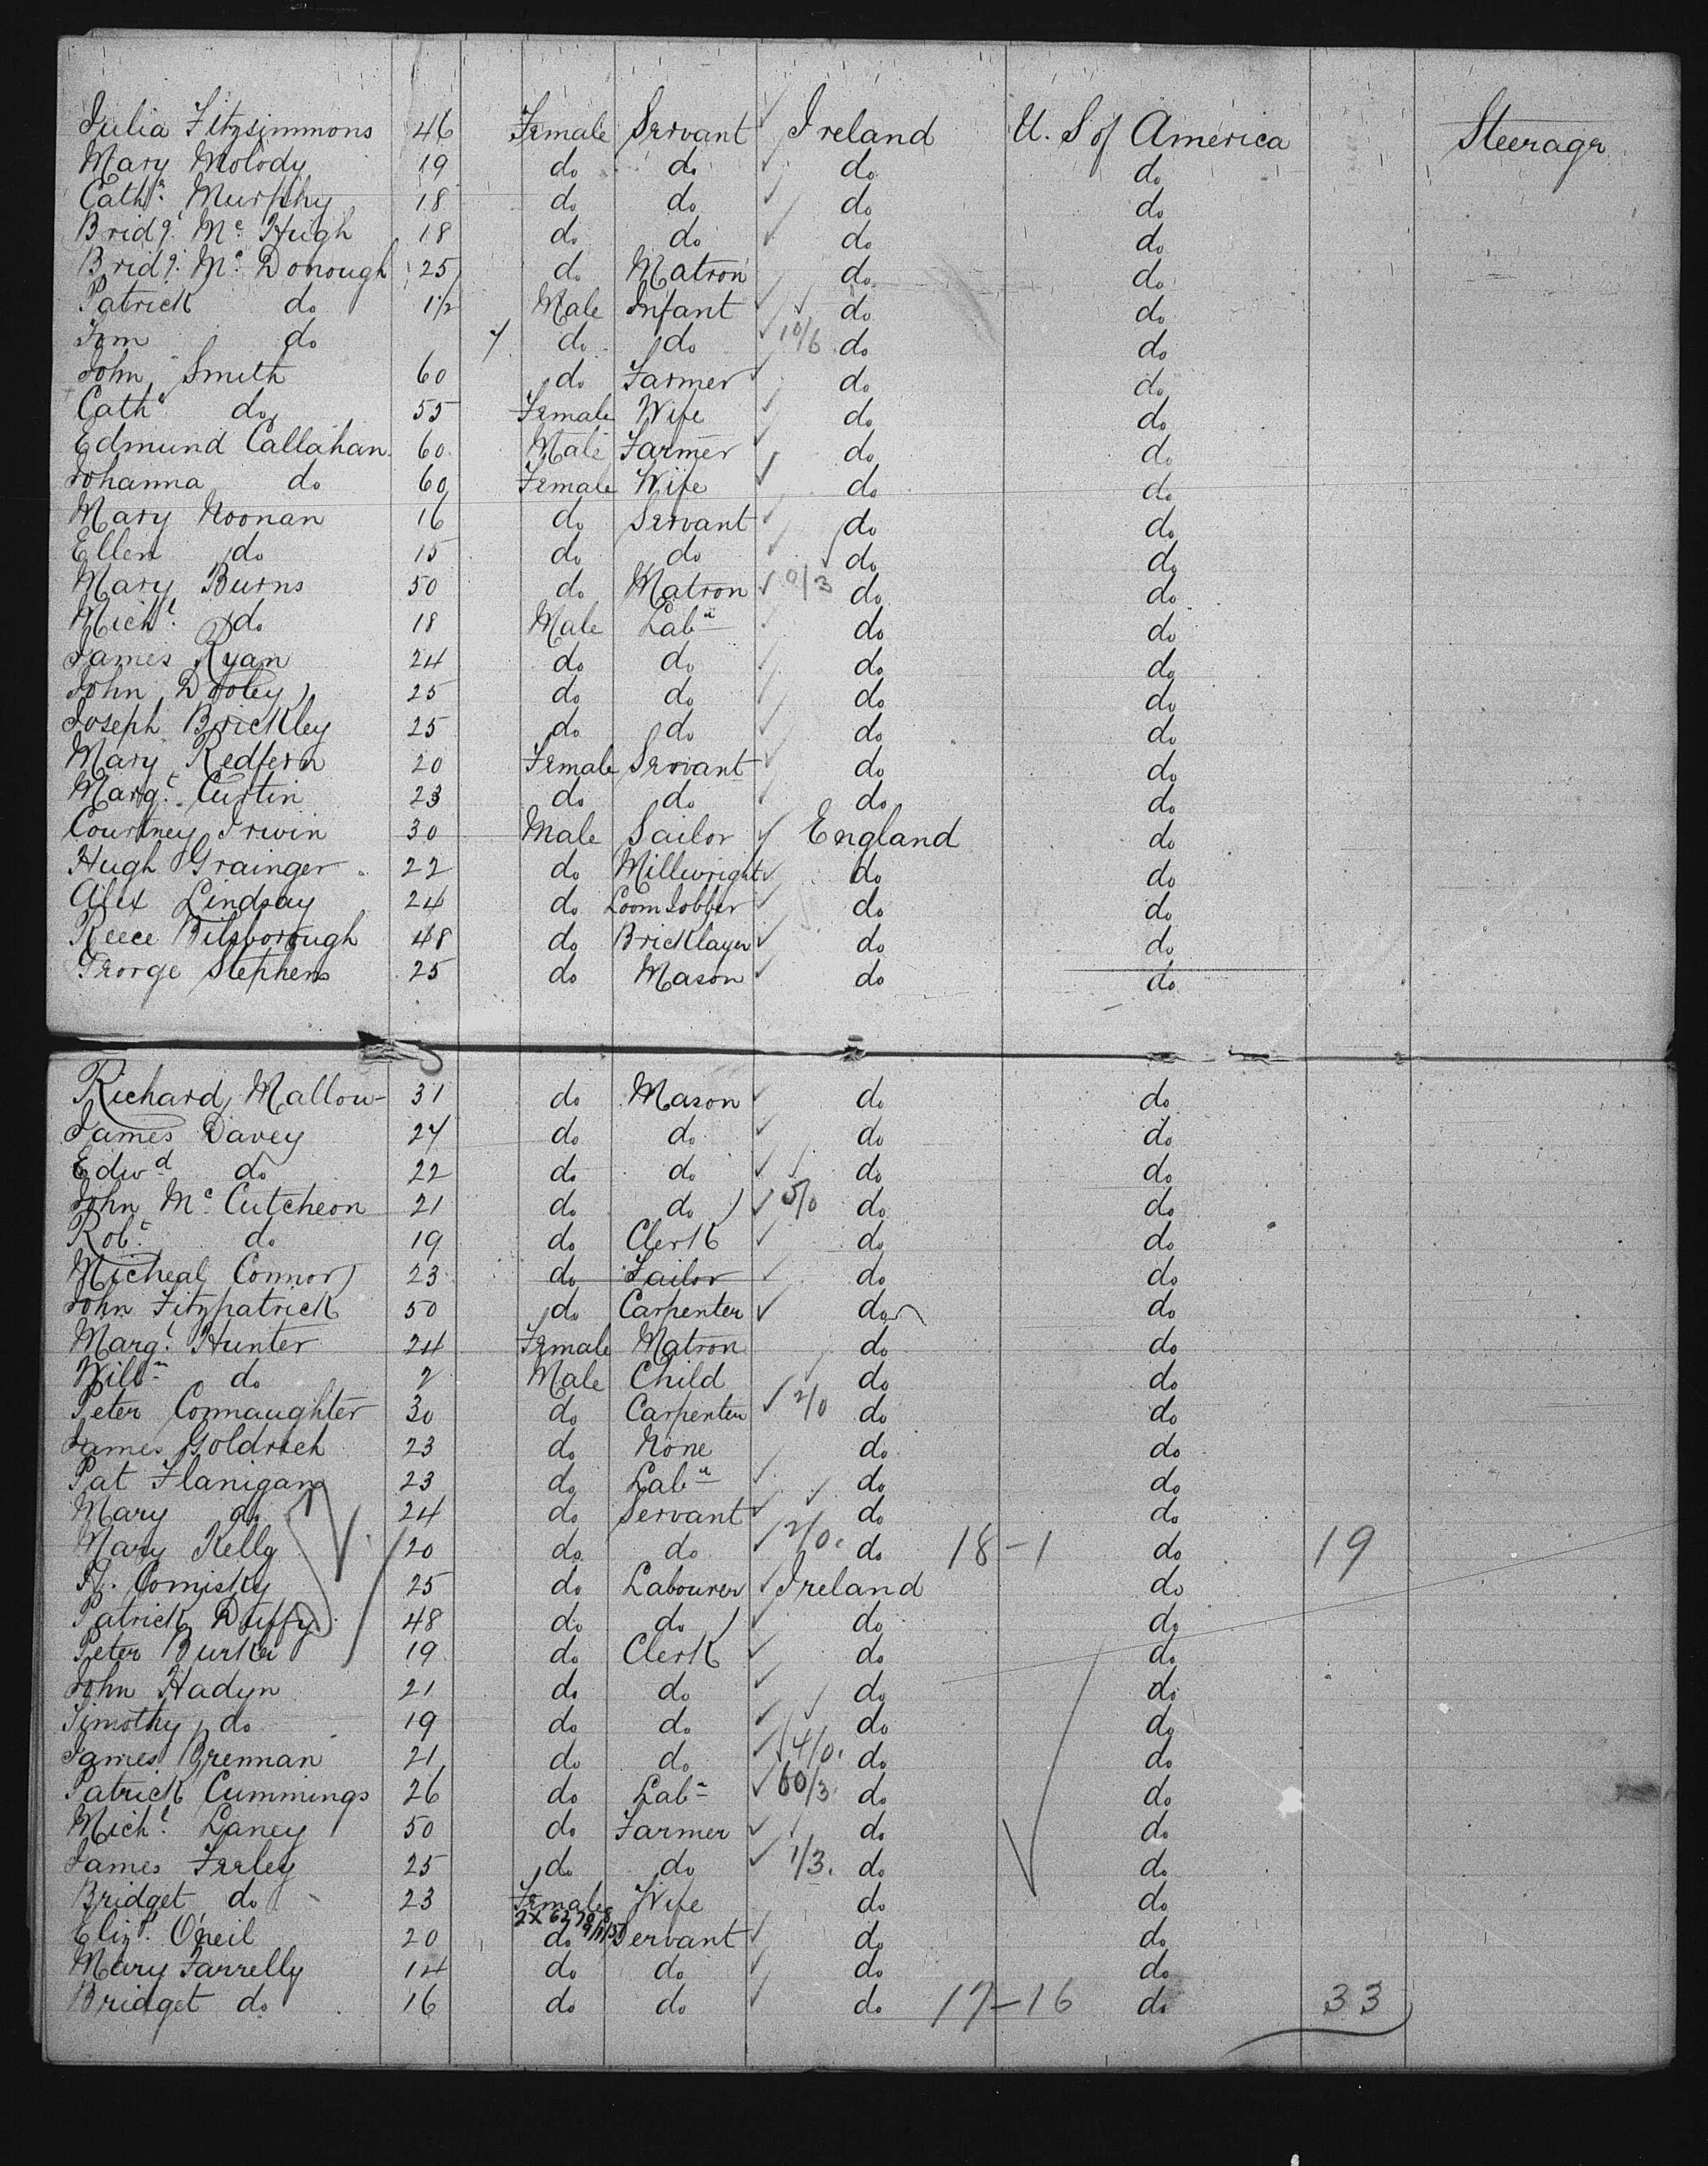 Julia Fitzsimmons 46 Female Servant Ireland U. S of America Steerage
Mary Molody 19 do do do do
Cath.n Murphy 18 do do do do
Bridg.t Mc Hugh 18 do do do do
Bridg.t Mc Donough 25 do Matron do do
Patrick do 1½ Male Infant do do
Tom do do do 10/6 do do
John Smith 60 do Farmer do do
Cath.n do 55 Female Wife do do
Edmund Callahan 60 Male Farmer do do
Johanna do 60 Female Wife do do
Mary Noonan 16 do Servant do do
Ellen do 15 do do do do
Mary Burns 50 do Matron 0/3 do do
Mich.l do 18 Male Lab.r do do
James Ryan 24 do do do do
John Dooley 25 do do do do
Joseph Brickley 25 do do do do
Mary Redfern 20 Female Servant do do
Marg.t Curtin 23 do do do do
Courtney Irwin 30 Male Sailor England do
Hugh Grainger 22 do Millwright do do
Alex Lindsay 24 do Loom Jobber do do
Reece Bilsborough 48 do Bricklayer do do
George Stephens 25 do Mason do do
Richard Mallow 31 do Mason do do
James Davey 24 do do do do
Edw.d do 22 do do do do
John Mc Cutcheon 21 do do 5/0 do do
Rob.t do 19 do Clerk do do
Micheal Connor 23 do Tailor do do
John Fitzpatrick 50 do Carpenter do do
Marg.t Hunter 24 Female Matron do do
Will.m do 2 Male Child do do
Peter Connaughter 30 do Carpenter 2/0 do do
James Goldrich 23 do None do do
Pat Flanigan 23 do Lab.r do do
Mary do 24 do Servant do do
Mary Kelly 20 do do 2/0. do 18-1 do 19
Comisky 25 do Labourer Ireland do
Patrick Duffy 48 do do do do
Peter Burke 19 do Clerk do do
John Hadyn 21 do do do do
Timothy do 19 do do do do
James Brennan 21 do do 4/0. do do
Patrick Cummings 26 do Lab.r 60/3. do do
Mich.l Laney 50 do Farmer do do
James Feeley 25 do do 1/3. do do
Bridget do 23 Female Wife do do
Eliz. Oneil 20 do Servant do do
Mary Farrelly 14 do do do do
Bridget do 16 do do do 17-16 do 33